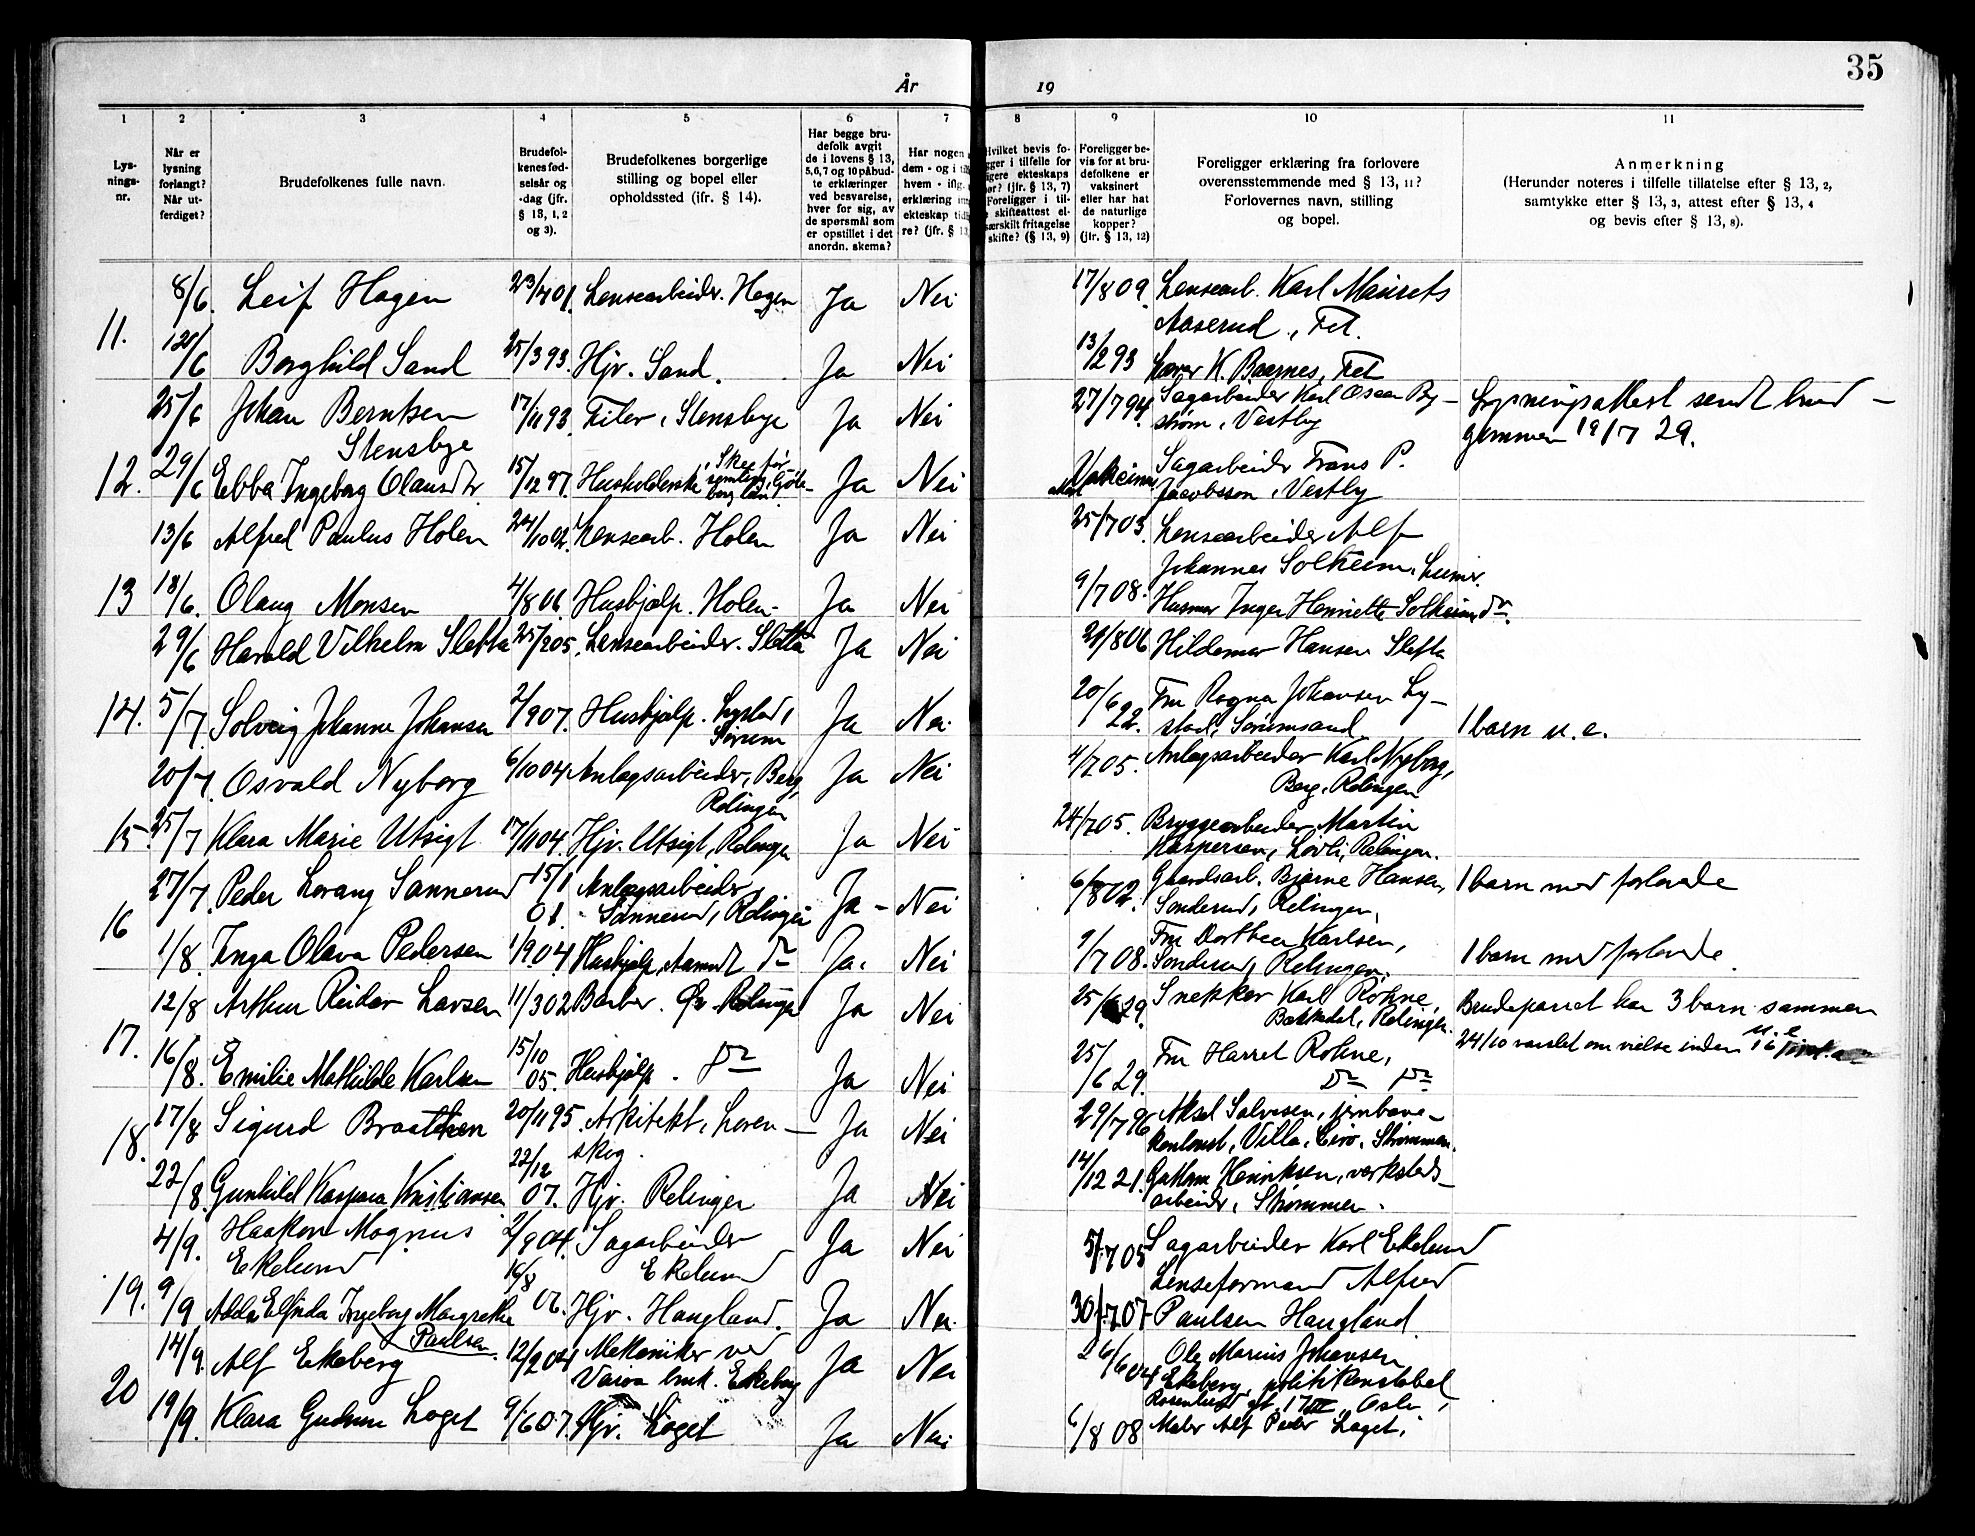 35
År 19
1 2 3 4 5 6 7 8 9 10 11
Lys-
nings-
nr.
Når er
lysning
forlangt?
Når ut-
ferdiget?
Brudefolkenes fulle navn.
Brudefol-
kenes fød-
selsår og
-dag (jfr.
§ 13, 1, 2
og 3).
Brudefolkenes borgerlige
stilling og bopel eller
opholdssted (ifr. § 14).
Har begge bru-
defolk avgit
de i lovens § 13,
5,6,7 og 10 påbud-
te erklæringer
ved besvarelse,
hver for sig, av
de spørsmål som
er opstillet i det
anordn. skema?
Har nogen
dem - og i til
hvem - iflg.
erklæring in
ekteskap tid
re? (jfr. § 13
Hvilket bevis fo-
gger i tilfelle for
igere ekteskaps
ør? (jfr. § 13, 7)
Foreligger i til-
e skifteattest el-
særskilt fritagelse
skifte? (§ 13, 9)
Foreligger be-
vis for at bru-
defolkene er
vaksinert
eller har hat
de naturlige
kopper?
(jfr. § 13, 12)
Foreligger erklæring fra forlovere
overensstemmende med § 13, 11?
Forlovernes navn, stilling
og bopel.
Anmerkning
(Herunder noteres i tilfelle tillatelse efter § 13, 2,
samtykke efter § 13, 3, attest efter § 13, 4
og bevis efter § 13, 8).
11. 8/6. Leif Hagen 23/7 01. Lensearbeider. Hagen Ja Nei 17/8 09. Lensearb. Karl Maurits
Aaserud, Fet.
/6 Borghild Sand 25/3 93. Hjv. Sand. Ja Nei 13/2 93 K. Baernes, Fet
25/6 Johan Berntsen 17/11 93. Filer, Stensbye Ja Nei 27/7 94. Sagarbeider Karl Oscar By-
strøm, Vestby
Stensbye
Lysningsattest sendt brud-
gommen 19/7 29.
12. 29/6 Ebba Ingeborg Olausdtr. 15/12 97. Husholderske, Ja Nei Sagarbeider Frans P.
Jacobsson, Vestby
13/6 Alfred Paulus Holen 24/10 02. Lensearb. Holen Ja Nei 25/7 03. Lensearbeider Alf
Johannes Solheim,
13 18/6. Olaug Monsen 4/8 06 Husbjælp. Holen. Ja Nei 9/7 08. Husmor Inger Henriette Solheim do.
29/6 Harald Vilhelm Sletta 25/2 05. Lensearbeider. Sletta Ja Nei 21/8 06 Hildemar Hansen Sletta
14. 5/7. Solveig Johanne Johansen 2/9 07. Husbjælp. Lystad, Ja Nei. 20/6 22. Fru Ragna Johansen Ly-
stad, Sørumsand
Sørum
1 barn u. e.
20/7. Osvald Nyborg 6/10 04 Anlegsarbeider, Berg, Ja Nei 4/7 05. Anlegsarbeider Karl Nyborg,
Relingen
Berg, Relingen
15. 25/7 Klara Marie Utsigt 17/11 04. Hjv. Utsigt, Relingen Ja Nei 24/7 05. Bryggearbeider Martin
Kaspersen, Løvli, Relingen.
16 27/7. Peder Lorang Sannerud 15/1 01. Anlegsarbeider Ja- Nei 6/8 02. Gaardsarb. Bjarne Hansen,
Sannerud, Relingen
Sonderud, Relingen,
1 barn med forlovede
1/8. Inga Olava Pedersen 1/9 04 Husbjælp, Aamodt do Ja. Nei 9/7 08. Fru Dorthea Karlsen,
Sonderud, Relingen.
1 barn med forlovede
17. 12/8 Arthur Reidar Larsen 11/3 02 Barber. Øv Relingen Ja Nei 25/6 29. Snekker Karl Rohne,
Bakkedal, Relingen.
Brudeparret har 3 barn sammen
u. e
24/10 varslet om vielse inden
16/8. Emilie Mathilde Karlsen 15/10 05. Husbjælp. do Ja Nei 25/6 29. Fru Harret Rohne,
do do
18. 17/8 Sigurd Braathen 20/11 95. Arkitekt, Loren- Ja Nei 29/7 96 Aksel Salvesen, jernbane-
skog.
kontorist, Villa, Strømmen.
22/8. Gunhild Kaspara Kristiansen 22/12 07. Hjv. Relingen Ja Nei 14/12 21. Henriksen, verksteds-
arbeider, Strømmen.
19. 4/9. Haakon Magnus 2/9 04. Sagarbeider Ja Nei 5/7 05 Sagarbeider Karl Ekelund
Ekelund
Ekelund
9/9 Ingeborg Margrethe 16/8 06. Hjv. Haugland. Ja Nei. 30/7 07 Lenseformand Alfred
Paulsen.
Paulsen Haugland
20 14/9. Alf Ekeberg 12/2 04 Mekaniker ved Ja Nei 26/6 04 Ole Marius Johansen
bruk. Ekeberg
Ekeberg, politikonstabel
Oslo,
19/9. Klara Gudrun Laget 9/6 07. Hjv. Laget Ja Nei 6/8 08 Maler Alf Peder Laget,